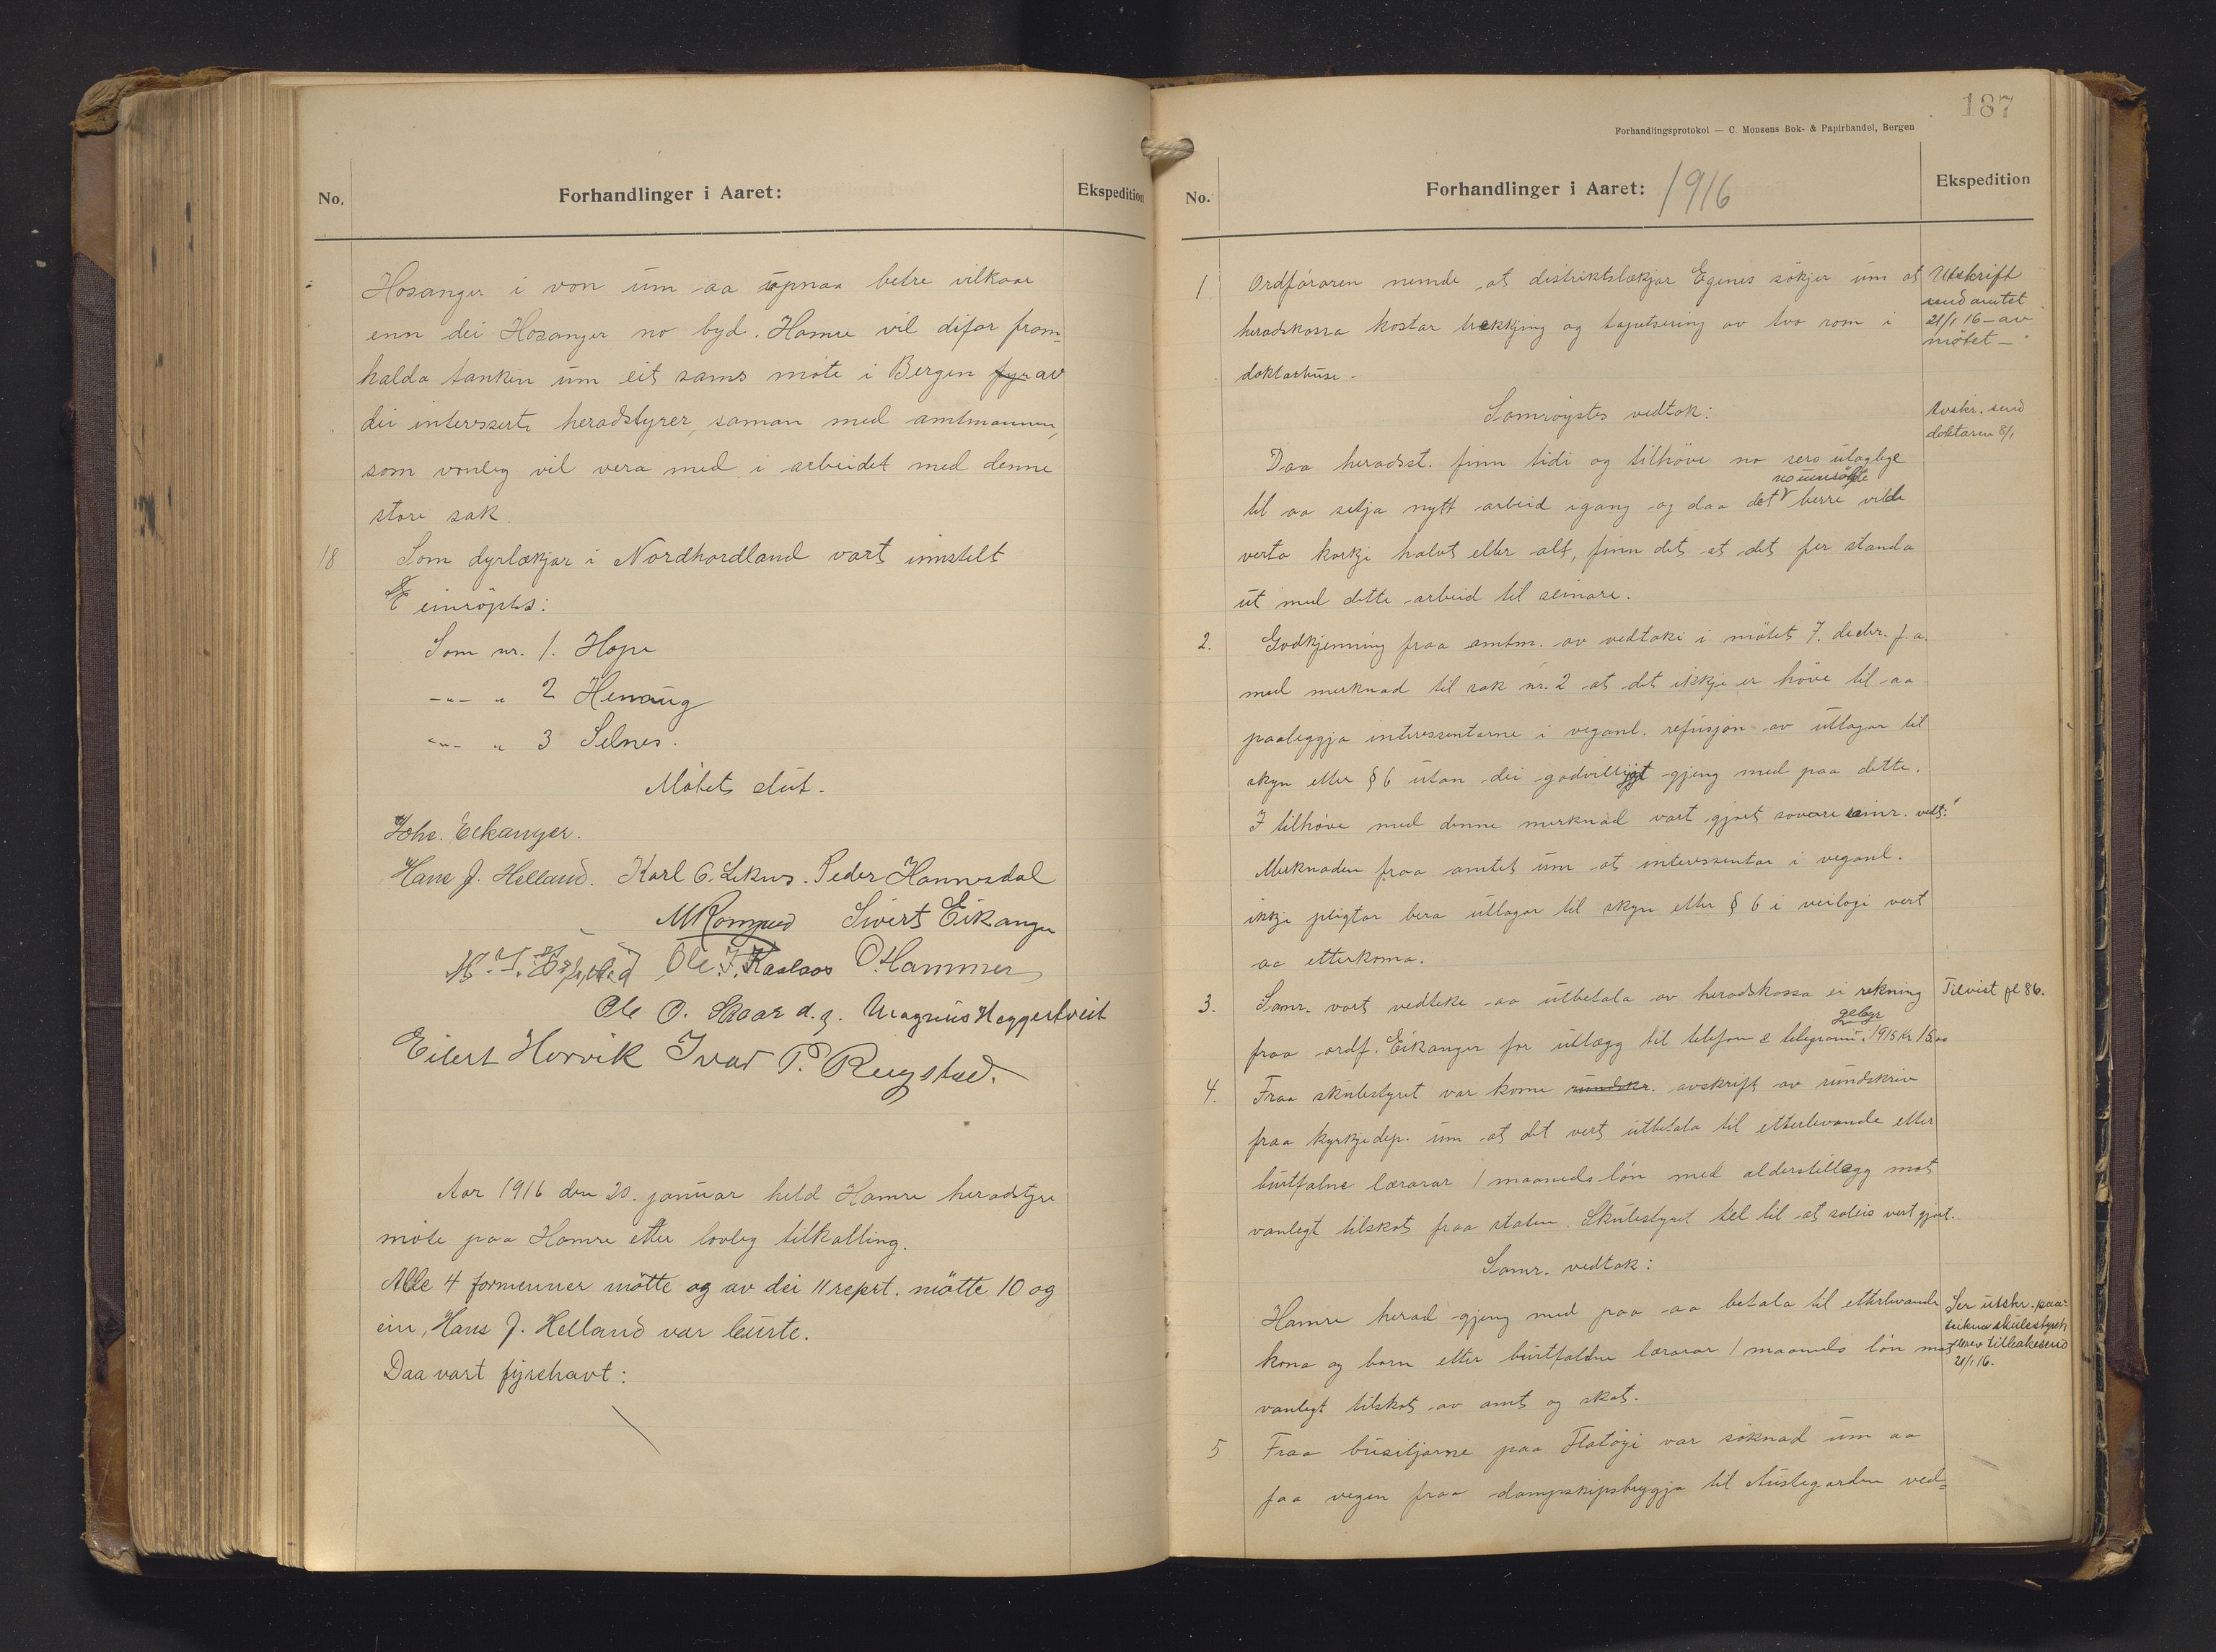 No.
Forhandlinger i Aaret:
Ekspedition
Hosanger i von um aa upnaa betre vilkaar
enn dei Hosanger no byd. Hamre vil difor fram-
halda tanken um eit sams møte i Bergen fyr av
dei interesserte heradstyrer, saman med amtmannen,
som vonleg vil vera med i arbeidet med denne
store sak.
18 Som dyrlækjar i Nordhordland vart innstelt
Einrøystes:
Som nr. 1. Hope
-"- " 2 Henaug
-"- " 3 Selnes.
Møtet slut.
Johs. Eikanger.
Hans J. Helland. Karl O. Leknes. Peder Hannisdal
Sivert Eikanger
Ole J. Kaalaas O Hammer
Ole O. Skaar d.y. Magnus Heggertveit
Eilert Horvik Ivar P. Rugstad.
Aar 1916 den 20. januar held Hamre heradstyre
møte paa Hamre etter lovleg tilkalling.
Alle 4 formenner møtte og av dei 11 reprt. møtte 10 og
ein, Hans J. Helland var burte.
Daa vart fyrehavt:
187
Forhandlingsprotokol — C. Monsens Bok- & Papirhandel, Bergen
No.
Forhandlinger i Aaret: 1916
Ekspedition
1 Ordføraren nemde at distriktslækjar Egenes søkjer um at
heradskassa kostar trekkjing og tapetsering av tvo rom i
doktarhuse.
Utskrift
send amtet
21/1 16 - av
møtet -
Samrøystes vedtok:
Avskr. send
doktaren 8/1
Daa heradsst. finn tidi og tilhøve no sers ulaglege
til aa setja nytt arbeid igang og daa det no umsøkte berre vilde
verta korkje halvt eller alt, finn det at det fær standa
ut med dette arbeid til seinare.
2. Godkjenning fraa amtm. av vedtaki i møtet 7. decbr. f.a.
med merknad til sak nr. 2 at det ikkje er høve til aa
paaleggja interessentarne i veganl. refusjon av utlagar til
skyn etter § 6 utan dei godvilligt gjeng med paa dette.
I tilhøve med denne merknad vart gjort sovore seinr. vedt.:
Merknaden fraa amtet um at interessentar i veganl.
ikkje pligtar bera utlagar til skyn etter § 6 i veilogi vert
aa etterkoma.
3. Samr. vart vedteke aa utbetala av heradskassa ei rekning
Tilvist fl 86.
fraa ordf. Eikanger for utlægg til telefon & telegramgebyr i 1915 Kr 15,00
4. Fraa skulestyret var kome rundskr. avskrift av rundskriv
fraa kyrkjedep. um at det vert utbetala til etterlevande etter
burtfalne lærarar 1 maaneds løn med alderstillegg mot
vanlegt tilskot fraa staten. Skulestyret tel til at soleis vert gjort.
Samr. vedtok:
Hamre herad gjeng med paa aa betala til etterlevande
kona og born etter burtfaldne lærarar 1 maaneds løn mot
vanlegt tilskot av amt og skat.
Ser utskr. paa-
teikna skulestyrets
brev tilbakesend
21/1 16.
5 Fraa busitjarne paa Flatøyi var søknad um aa
faa vegen fraa dampskipsbryggja til Austegarden ved-